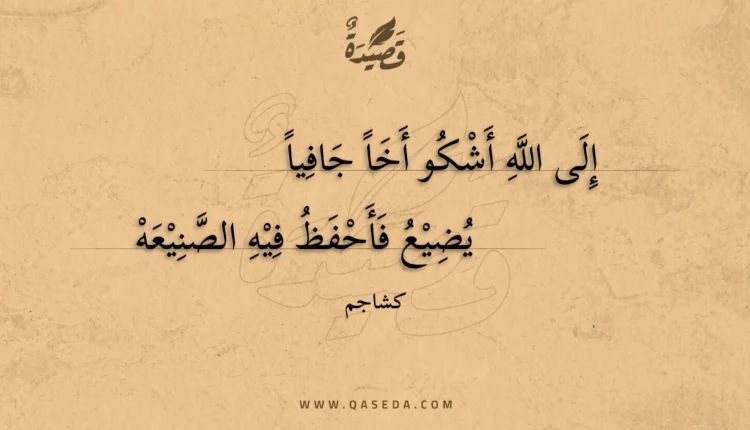 قَصِيْدَةٌ
إِلَى اللَّهِ أَشْكُو أَخَاً جَافِياً
يُضِيْعُ فَأَحْفَظُ فِيْهِ الصَّنِيْعَهْ
كشاجم
WWW.QASEDA.COM